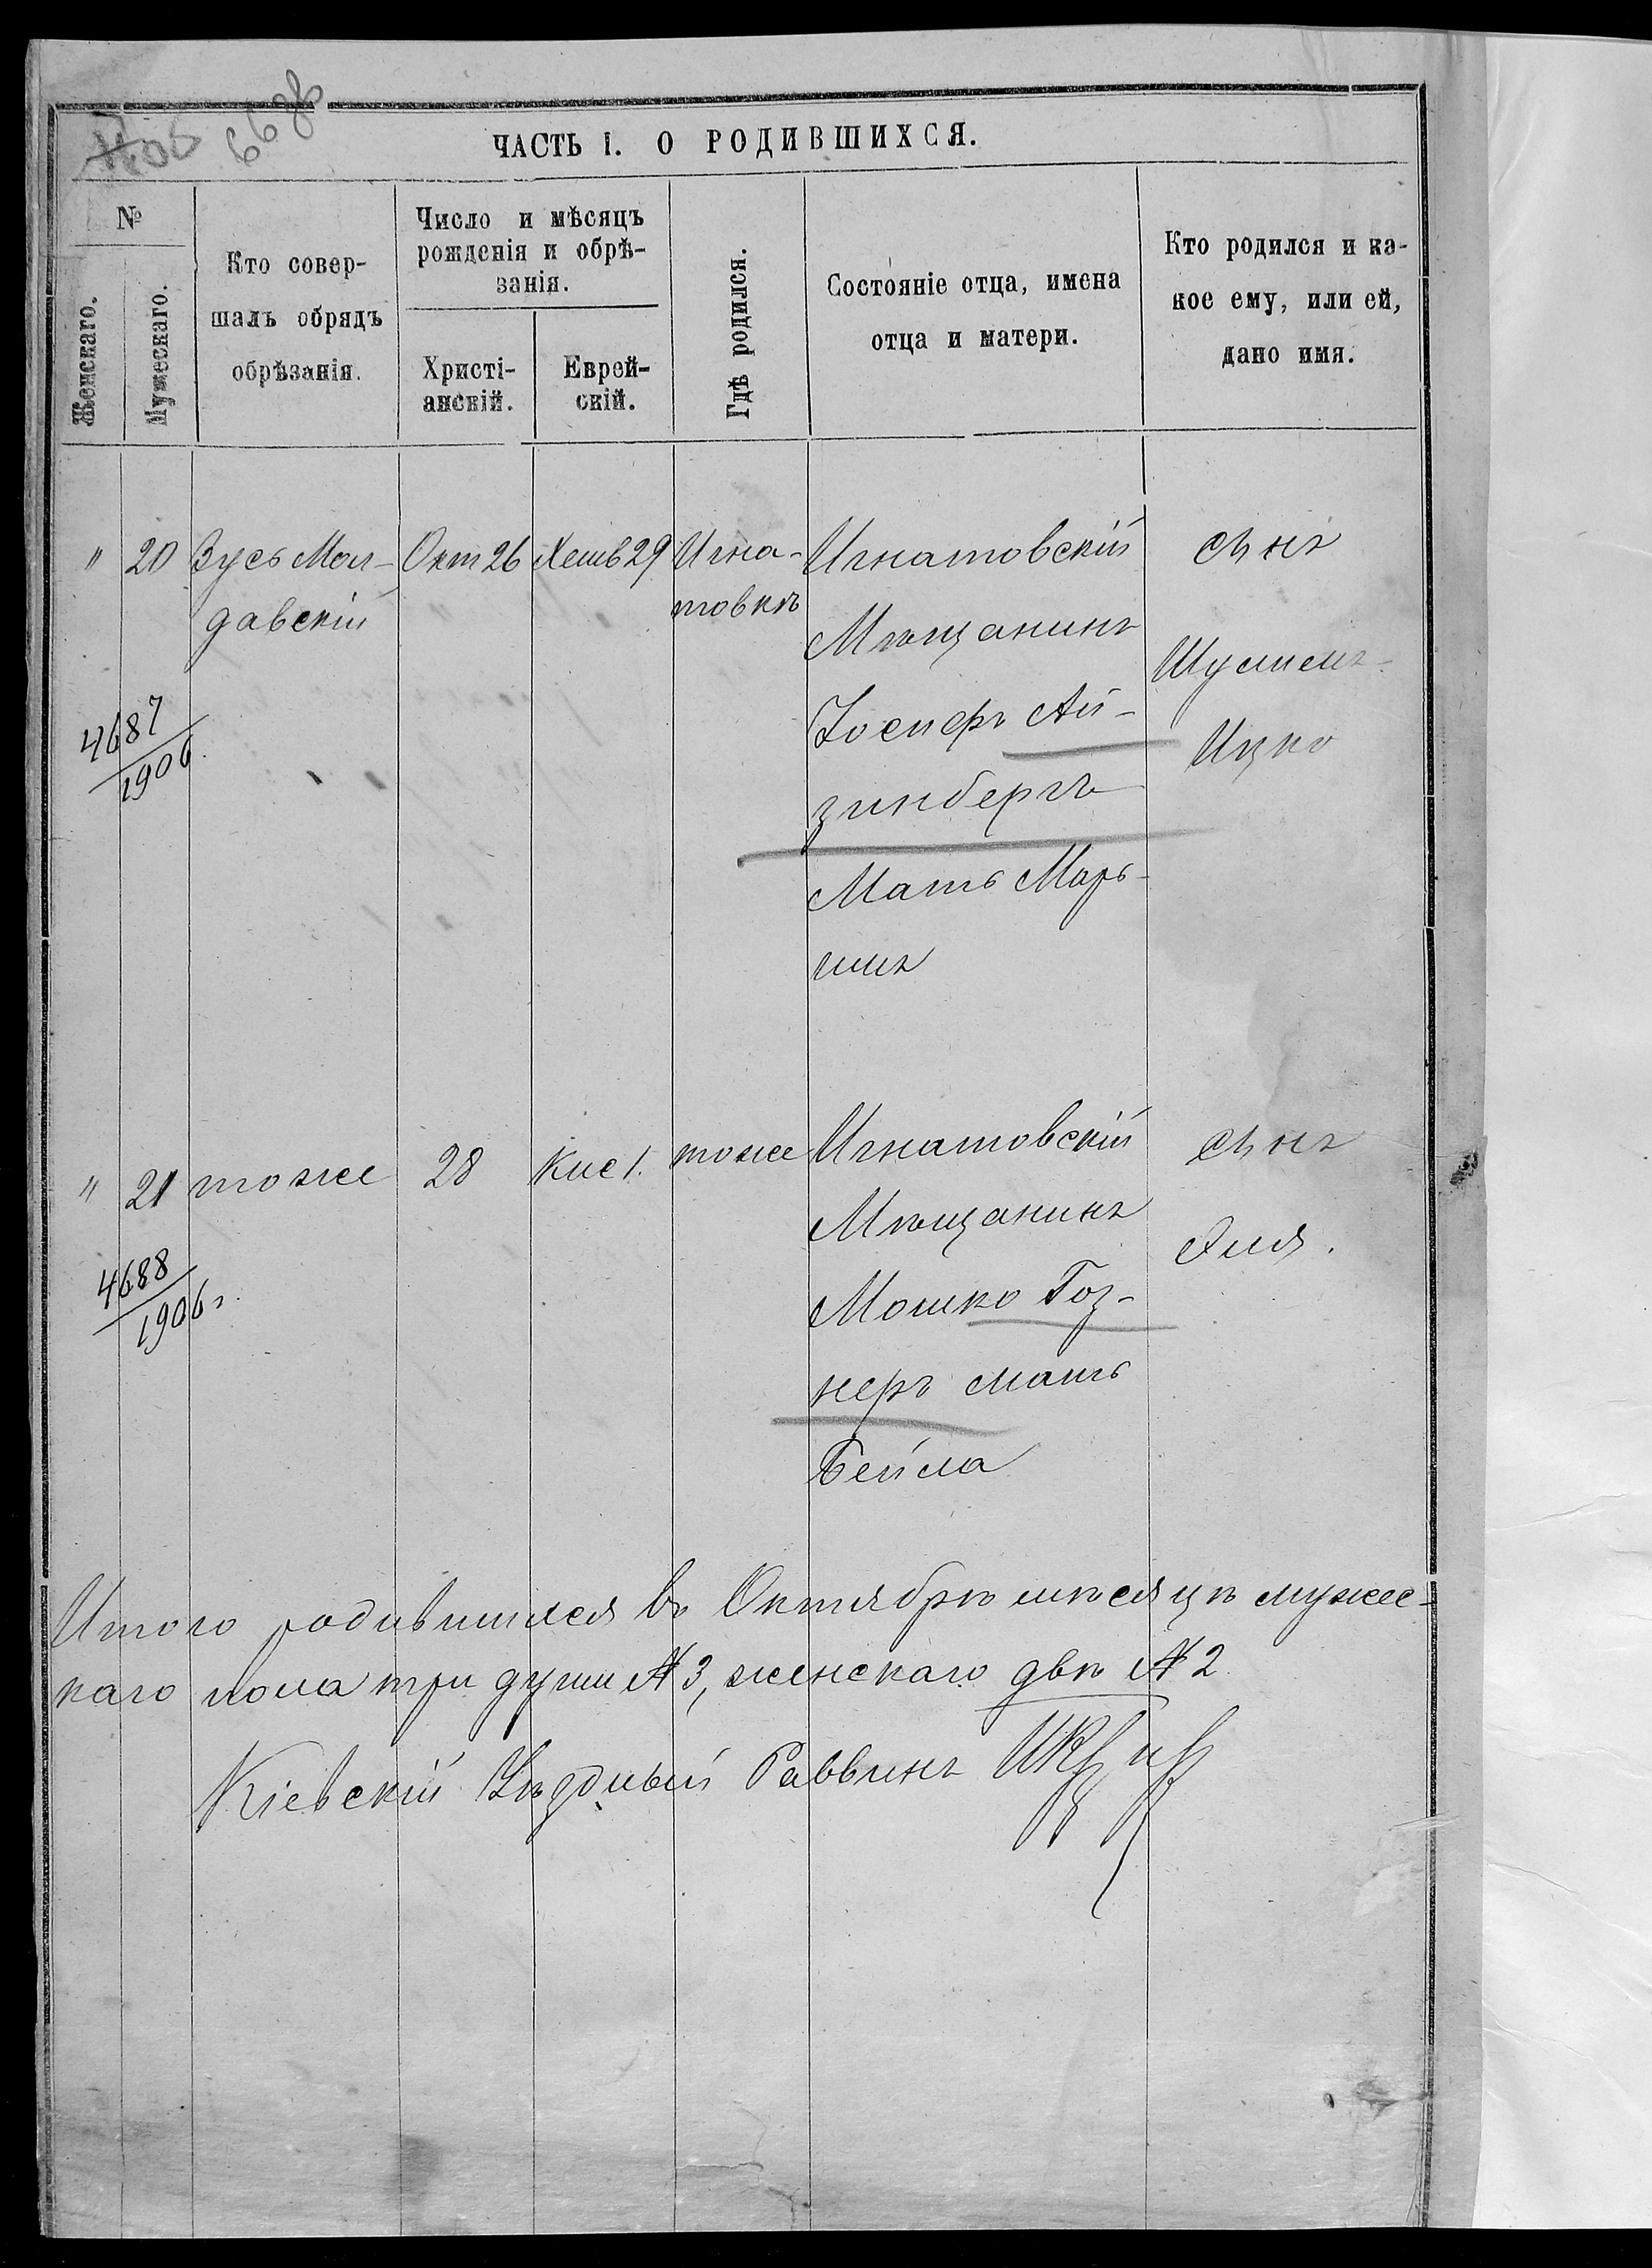 1105 6698
ЧАСТЬ I. О РОДИВШИХСЯ.
№
Женскаго.
Мужескаго.
Кто совер-
шалъ обрядъ
обрѣзанія.
Число и мѣсяцъ
рожденія и обрѣ-
занія.
Христі-
анскій.
Еврей-
скій.
Гдѣ родился.
Состояніе отца, имена
отца и матери.
Кто родился и ка-
кое ему, или ей,
дано имя.
" 20 Зусь Мол-
давскій
Окт 26 Хешв 29 Игна-
товкѣ
Игнатовскій
Мѣщанинъ
Іосифъ Ай-
зинберъ
Мать Марь-
сынъ
Ицко
4687
1906
" 21 тоже 28 Кис 1. тоже Игнатовскій
Мѣщанинъ
Мошко Гоз-
неръ мать
Бейла
сынъ
Эля.
4688
1906 г.
Итого родившихся въ Октябрѣ мѣсяцѣ мужес-
каго пола три души № 3, женскаго двѣ № 2
Кіевскій Уѣздный Раввинъ